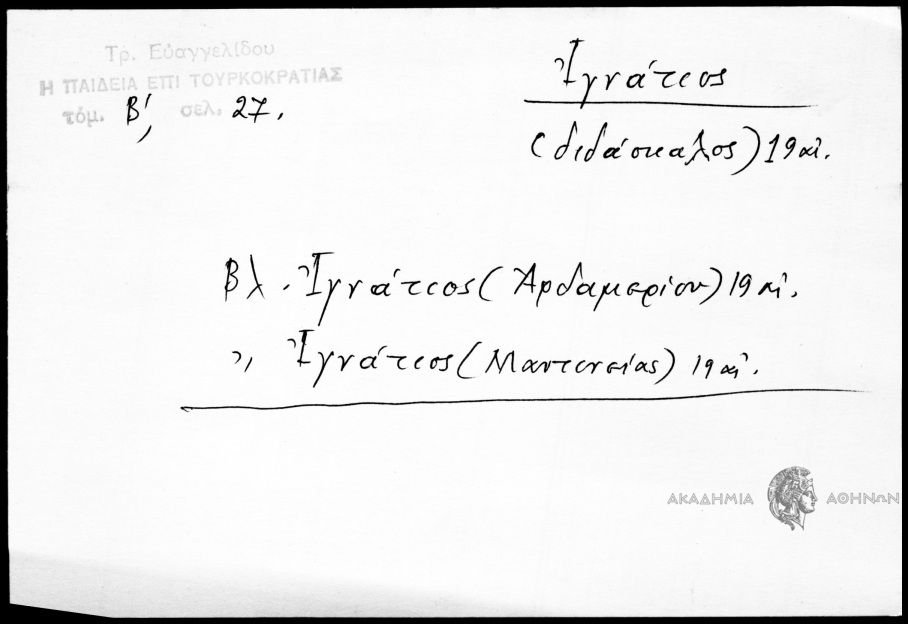 Τρ. Εὐαγγελίδου
Η ΠΑΙΔΕΙΑ ΕΠΙ ΤΟΥΡΚΟΚΡΑΤΙΑΣ
τόμ. Β', σελ. 27.
Ἰγνάτιος
(διδάσκαλος) 19 αἰ.
Βλ. Ἰγνάτιος (Ἀρδαμερίου) 19 αἰ.
,, Ἰγνάτιος (Μαντινείας) 19 αἰ.
ΑΚΑΔΗΜΙΑ ΑΘΗΝΩΝ